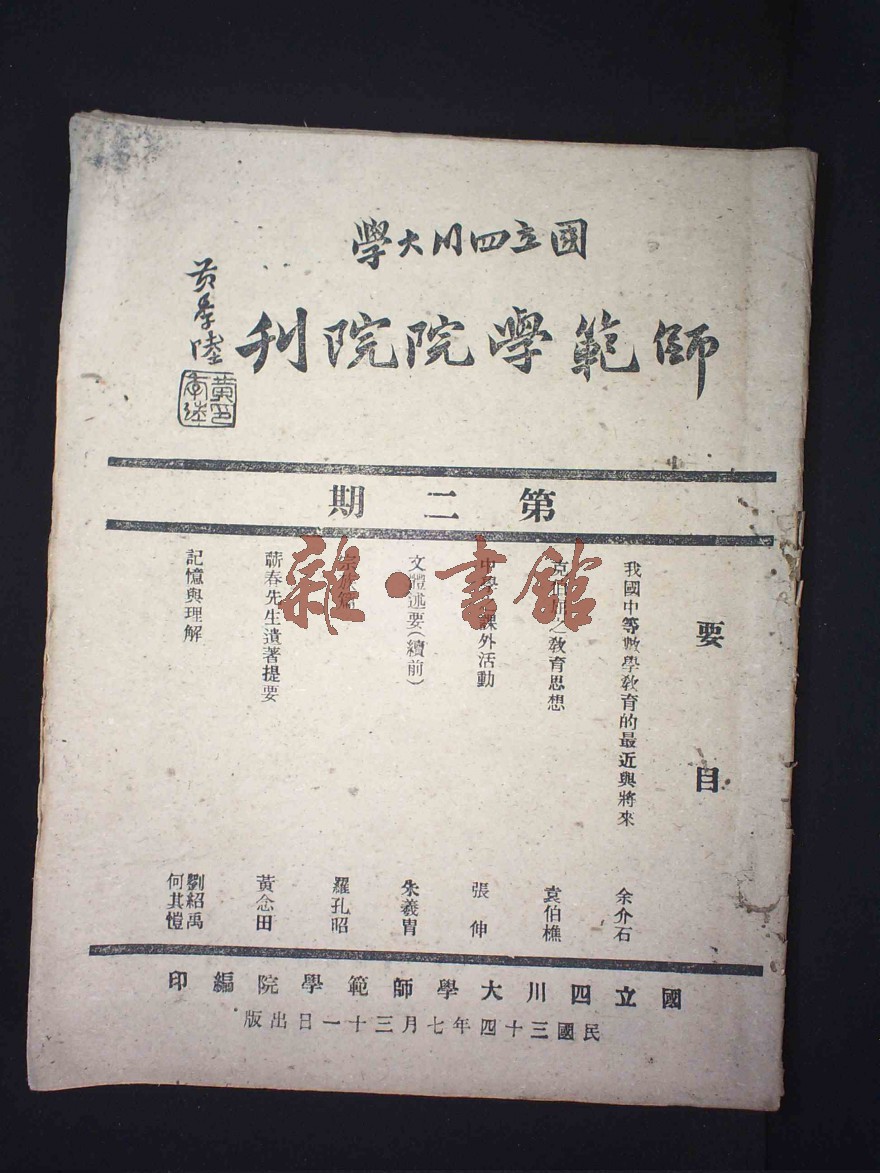 國立四川大學
師範學院院刊
黃季陸
黃季陸印
第二期
要目
我國中等數學教育的最近與將來 余介石
克伯屈之教育思想 袁伯樵
中學 課外活動 張伸
文體述要(續前) 朱羲胄
宗 篇 羅孔昭
蘄春先生遺著提要 黃念田
記憶與理解 劉紹禹 何其愷
國立四川大學師範學院編印
民國三十四年七月三十一日出版
雜·書館